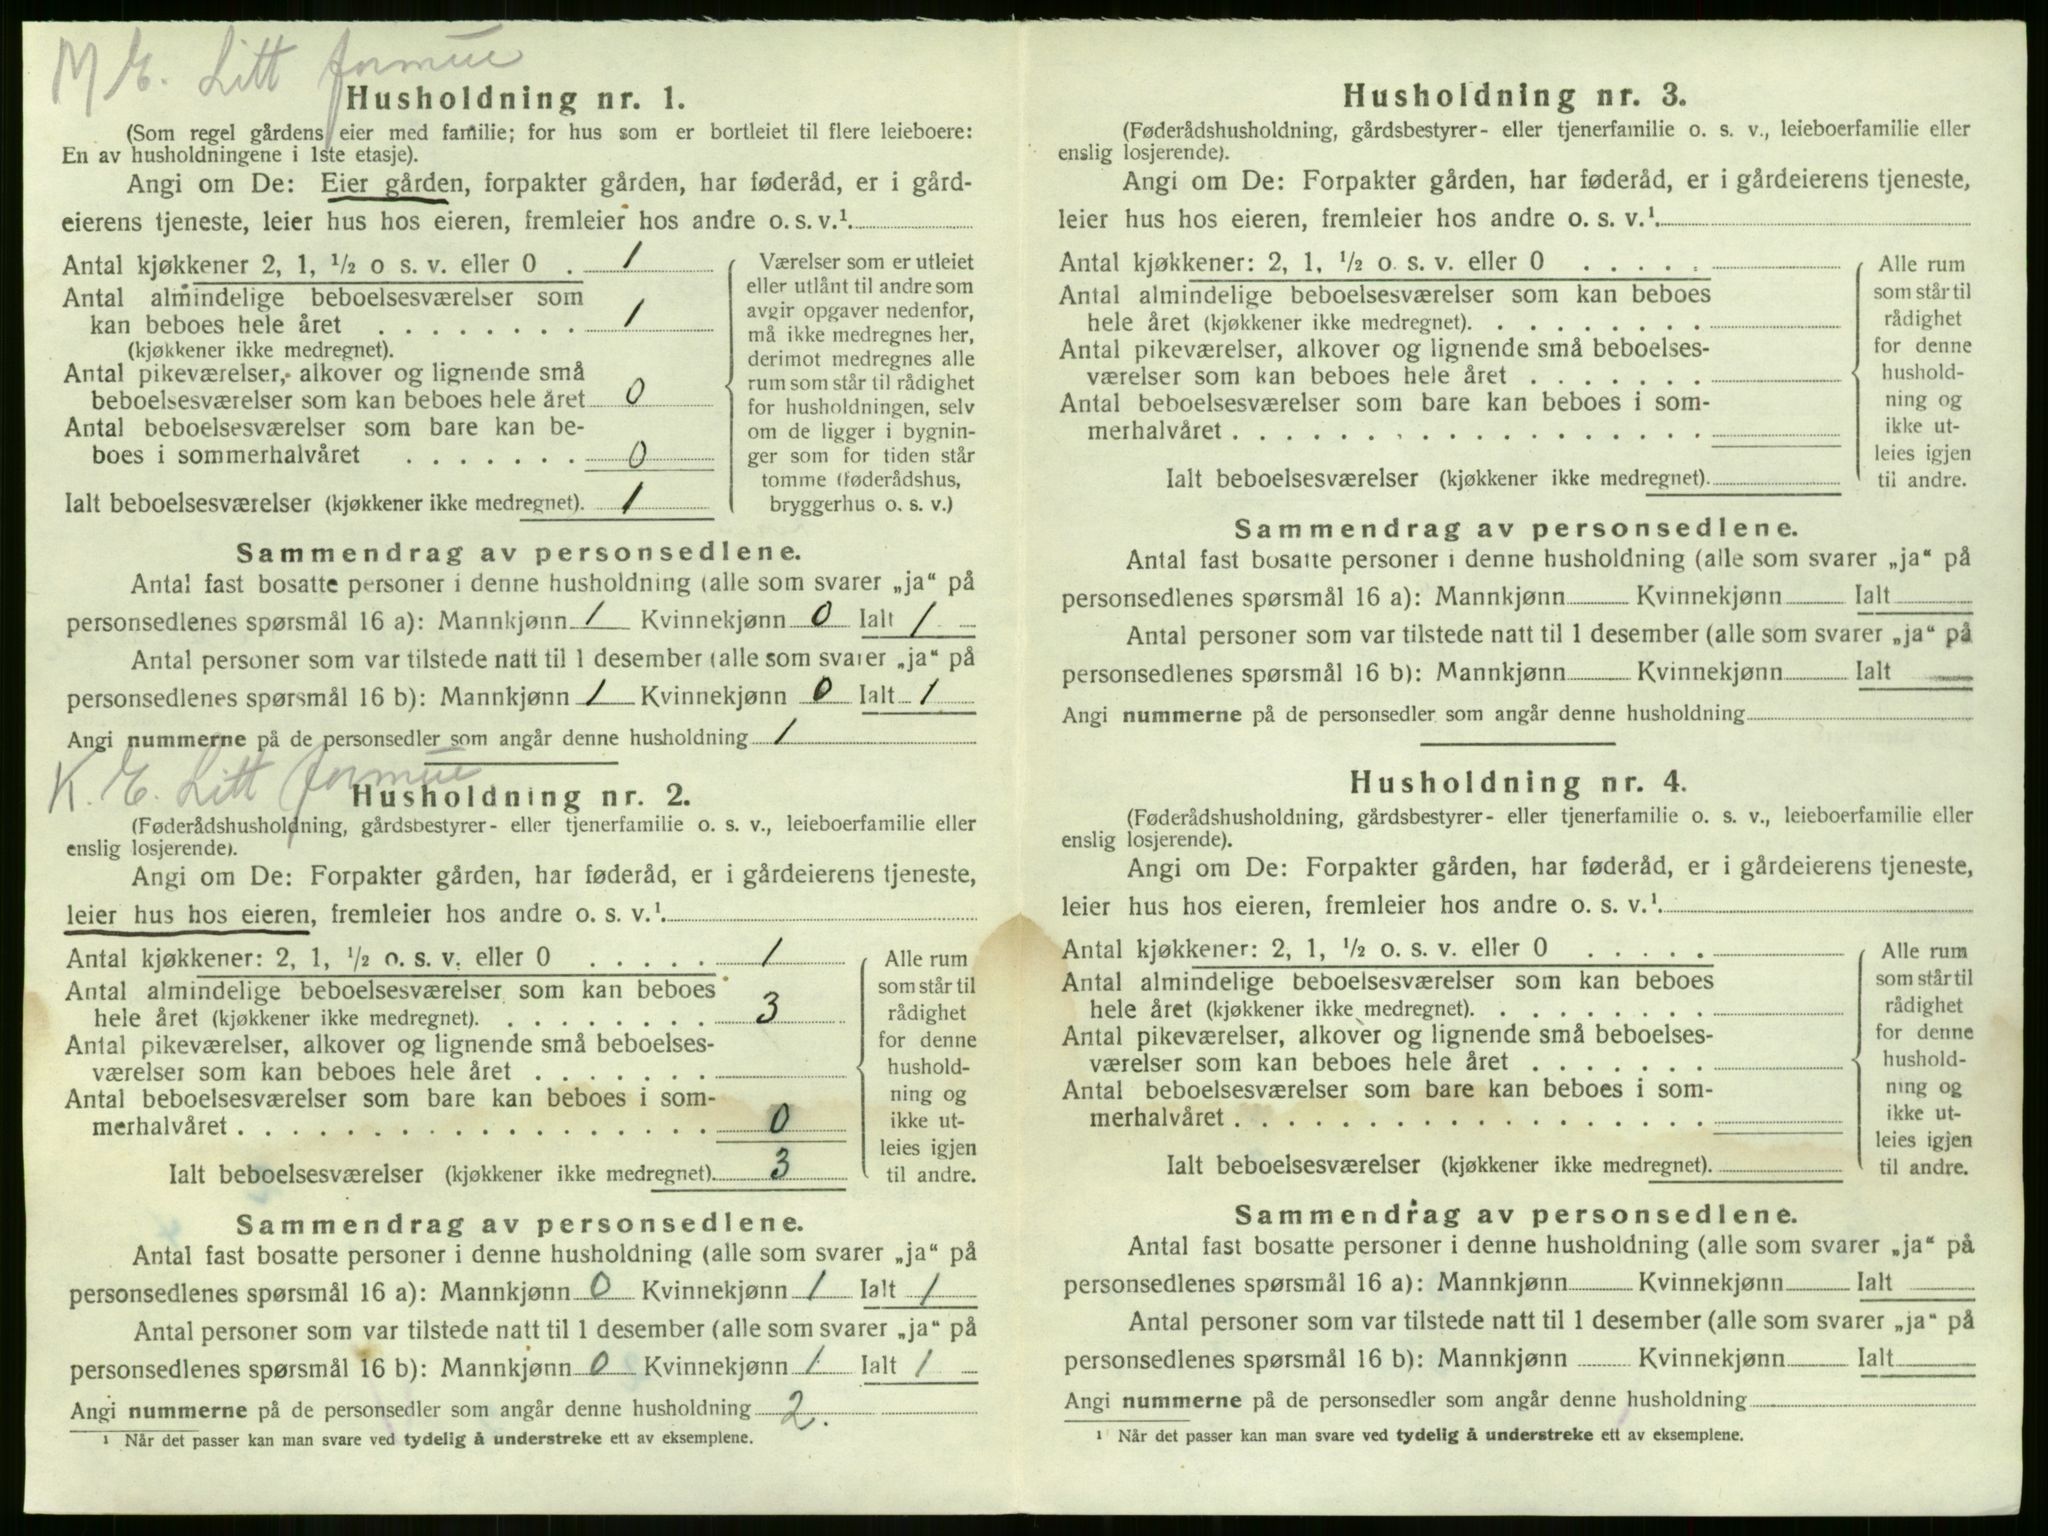 M E. Litt formue
Husholdning nr. 1.
(Som regel gårdens eier med familie; for hus som er bortleiet til flere leieboere:
En av husholdningene i 1ste etasje).
Angi om De: Eier gården, forpakter gården, har føderåd, er i gård-
eierens tjeneste, leier hus hos eieren, fremleier hos andre o. s. v.¹
Antal kjøkkener 2, 1, ½ o s. v. eller 0 . 1
Antal almindelige beboelsesværelser som
kan beboes hele året . . . . . . . . 1
(kjøkkener ikke medregnet).
Antal pikeværelser, alkover og lignende små
beboelsesværelser som kan beboes hele året 0
Antal beboelsesværelser som bare kan be-
boes i sommerhalvåret . . . . . . . 0
Ialt beboelsesværelser (kjøkkener ikke medregnet). 1
Værelser som er utleiet
eller utlånt til andre som
avgir opgaver nedenfor,
må ikke medregnes her,
derimot medregnes alle
rum som står til rådighet
for husholdningen, selv
om de ligger i bygnin-
ger som for tiden står
tomme (føderådshus,
bryggerhus o. s. v.)
Sammendrag av personsedlene.
Antal fast bosatte personer i denne husholdning (alle som svarer „ja“ på
personsedlenes spørsmål 16 a): Mannkjønn 1 Kvinnekjønn 0 Ialt 1
Antal personer som var tilstede natt til 1 desember (alle som svarer „ja“ på
personsedlenes spørsmål 16 b): Mannkjønn 1 Kvinnekjønn 0 Ialt 1
Angi nummerne på de personsedler som angår denne husholdning 1
K. E. Litt formue
Husholdning nr. 2.
(Føderådshusholdning, gårdsbestyrer- eller tjenerfamilie o. s. v., leieboerfamilie eller
enslig losjerende).
Angi om De: Forpakter gården, har føderåd, er i gårdeierens tjeneste,
leier hus hos eieren, fremleier hos andre o. s. v.¹
Antal kjøkkener: 2, 1, ½ o. s. v. eller 0 . . . . . 1
Antal almindelige beboelsesværelser som kan beboes
hele året (kjøkkener ikke medregnet). . . . . . . . . 3
Antal pikeværelser, alkover og lignende små beboelses-
værelser som kan beboes hele året . . . . . . .
Antal beboelsesværelser som bare kan beboes i som-
merhalvåret . . . . . . . . . . . . . . . . . . 0
Ialt beboelsesværelser (kjøkkener ikke medregnet). 3
Alle rum
som står til
rådighet
for denne
hushold-
ning og
ikke ut-
leies igjen
til andre.
Sammendrag av personsedlene.
Antal fast bosatte personer i denne husholdning (alle som svarer „ja“ på
personsedlenes spørsmål 16 a): Mannkjønn 0 Kvinnekjønn 1 Ialt 1
Antal personer som var tilstede natt til 1 desember (alle som svarer „ja“ på
personsedlenes spørsmål 16 b): Mannkjønn 0 Kvinnekjønn 1 Ialt 1
Angi nummerne på de personsedler som angår denne husholdning 2.
¹ Når det passer kan man svare ved tydelig å understreke ett av eksemplene.
Husholdning nr. 3.
(Føderådshusholdning, gårdsbestyrer- eller tjenerfamilie o. s. v., leieboerfamilie eller
enslig losjerende).
Angi om De: Forpakter gården, har føderåd, er i gårdeierens tjeneste,
leier hus hos eieren, fremleier hos andre o. s. v.¹
Antal kjøkkener: 2, 1, ½ o. s. v. eller 0 . . . . .
Antal almindelige beboelsesværelser som kan beboes
hele året (kjøkkener ikke medregnet). . . . . . . . .
Antal pikeværelser, alkover og lignende små beboelses-
værelser som kan beboes hele året . . . . . . .
Antal beboelsesværelser som bare kan beboes i som-
merhalvåret . . . . . . . . . . . . . . . . . .
Ialt beboelsesværelser (kjøkkener ikke medregnet).
Alle rum
som står til
rådighet
for denne
hushold-
ning og
ikke ut-
leies igjen
til andre.
Sammendrag av personsedlene.
Antal fast bosatte personer i denne husholdning (alle som svarer „ja“ på
personsedlenes spørsmål 16 a): Mannkjønn Kvinnekjønn Ialt
Antal personer som var tilstede natt til 1 desember (alle som svarer „ja“ på
personsedlenes spørsmål 16 b): Mannkjønn Kvinnekjønn Ialt
Angi nummerne på de personsedler som angår denne husholdning
Husholdning nr. 4.
(Føderådshusholdning, gårdsbestyrer- eller tjenerfamilie o. s. v., leieboerfamilie eller
enslig losjerende).
Angi om De: Forpakter gården, har føderåd, er i gårdeierens tjeneste,
leier hus hos eieren, fremleier hos andre o. s. v.¹
Antal kjøkkener: 2, 1, ½ o. s. v. eller 0 . . . . .
Antal almindelige beboelsesværelser som kan beboes
hele året (kjøkkener ikke medregnet). . . . . . . . .
Antal pikeværelser, alkover og lignende små beboelses-
værelser som kan beboes hele året . . . . . . .
Antal beboelsesværelser som bare kan beboes i som-
merhalvåret . . . . . . . . . . . . . . . . . .
Ialt beboelsesværelser (kjøkkener ikke medregnet).
Alle rum
som står til
rådighet
for denne
hushold-
ning og
ikke ut-
leies igjen
til andre.
Sammendrag av personsedlene.
Antal fast bosatte personer i denne husholdning (alle som svarer „ja“ på
personsedlenes spørsmål 16 a): Mannkjønn Kvinnekjønn Ialt
Antal personer som var tilstede natt til 1 desember (alle som svarer „ja“ på
personsedlenes spørsmål 16 b): Mannkjønn Kvinnekjønn Ialt
Angi nummerne på de personsedler som angår denne husholdning
¹ Når det passer kan man svare ved tydelig å understreke ett av eksemplene.